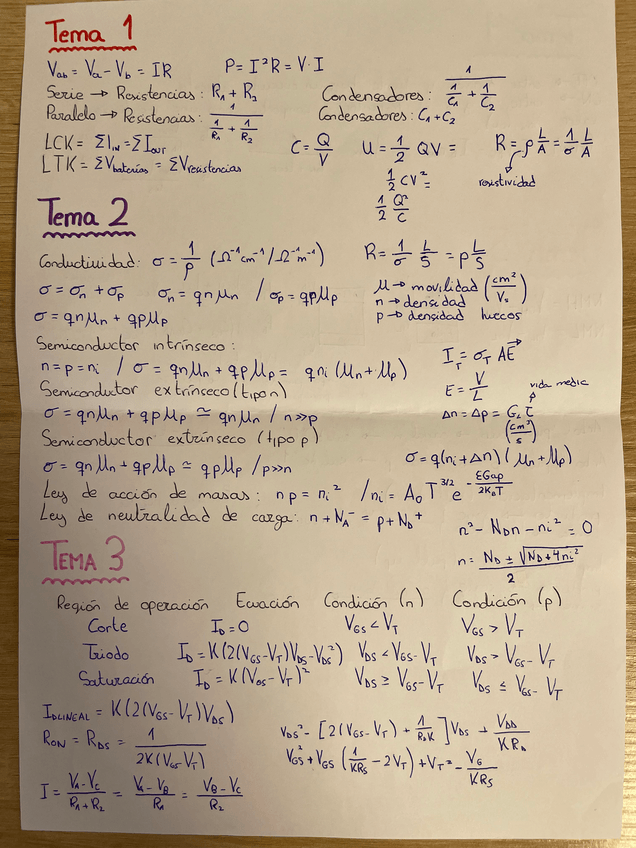 Tema 1
Vab = Va - Vb = IR P = I²R = V·I
Serie → Resistencias: R1 + R2 Condensadores: 1/(1/C1 + 1/C2)
Paralelo → Resistencias: 1/(1/R1 + 1/R2) Condensadores: C1 + C2
LCK = ΣIIN = ΣIOUT C = Q/V U = 1/2 QV = R = ρ L/A = 1/σ L/A
LTK = ΣVbaterías = ΣVresistencias 1/2 CV² = resistividad
1/2 Q²/C
Tema 2
Conductividad: σ = 1/ρ (Ω⁻¹cm⁻¹/Ω⁻¹m⁻¹) R = 1/σ L/S = ρ L/S
σ = σn + σp σn = qnμn / σp = qpμp μ → movilidad (cm²/Vs)
n → densidad
σ = qnμn + qpμp p → densidad huecos
Semiconductor intrínseco:
n = p = ni / σ = qnμn + qpμp = qni (μn + μp) IT = σT AE
Semiconductor extrínseco (tipo n) E = V/L vida media
σ = qnμn + qpμp ≃ qnμn / n>>p Δn = Δp = GL τ
Semiconductor extrínseco (tipo p) (cm³/s)
σ = qnμn + qpμp ≃ qpμp / p>>n σ = q(ni + Δn)(μn + μp)
Ley de acción de masas: np = ni² / ni = A0 T^3/2 e^-EGap/2KBT
Ley de neutralidad de carga: n + NA⁻ = p + ND⁺ n² - NDn - ni² = 0
n = (ND ± √(ND + 4ni²))/2
TEMA 3
Región de operación Ecuación Condición (n) Condición (p)
Corte ID = 0 VGS < VT VGS > VT
Triodo ID = K(2(VGS - VT)VDS - VDS²) VDS < VGS - VT VDS > VGS - VT
Saturación ID = K(VGS - VT)² VDS ≥ VGS - VT VDS ≤ VGS - VT
IDLINEAL = K(2(VGS - VT)VDS)
RON = RDS = 1/(2K(VGS - VT)) VDS² - [2(VGS - VT) + 1/RDK] VDS + VDD/KRD
VGS² + VGS (1/KRS - 2VT) + VT² - VG/KRS
I = (VA - VC)/(R1 + R2) = (VA - VB)/R1 = (VB - VC)/R2